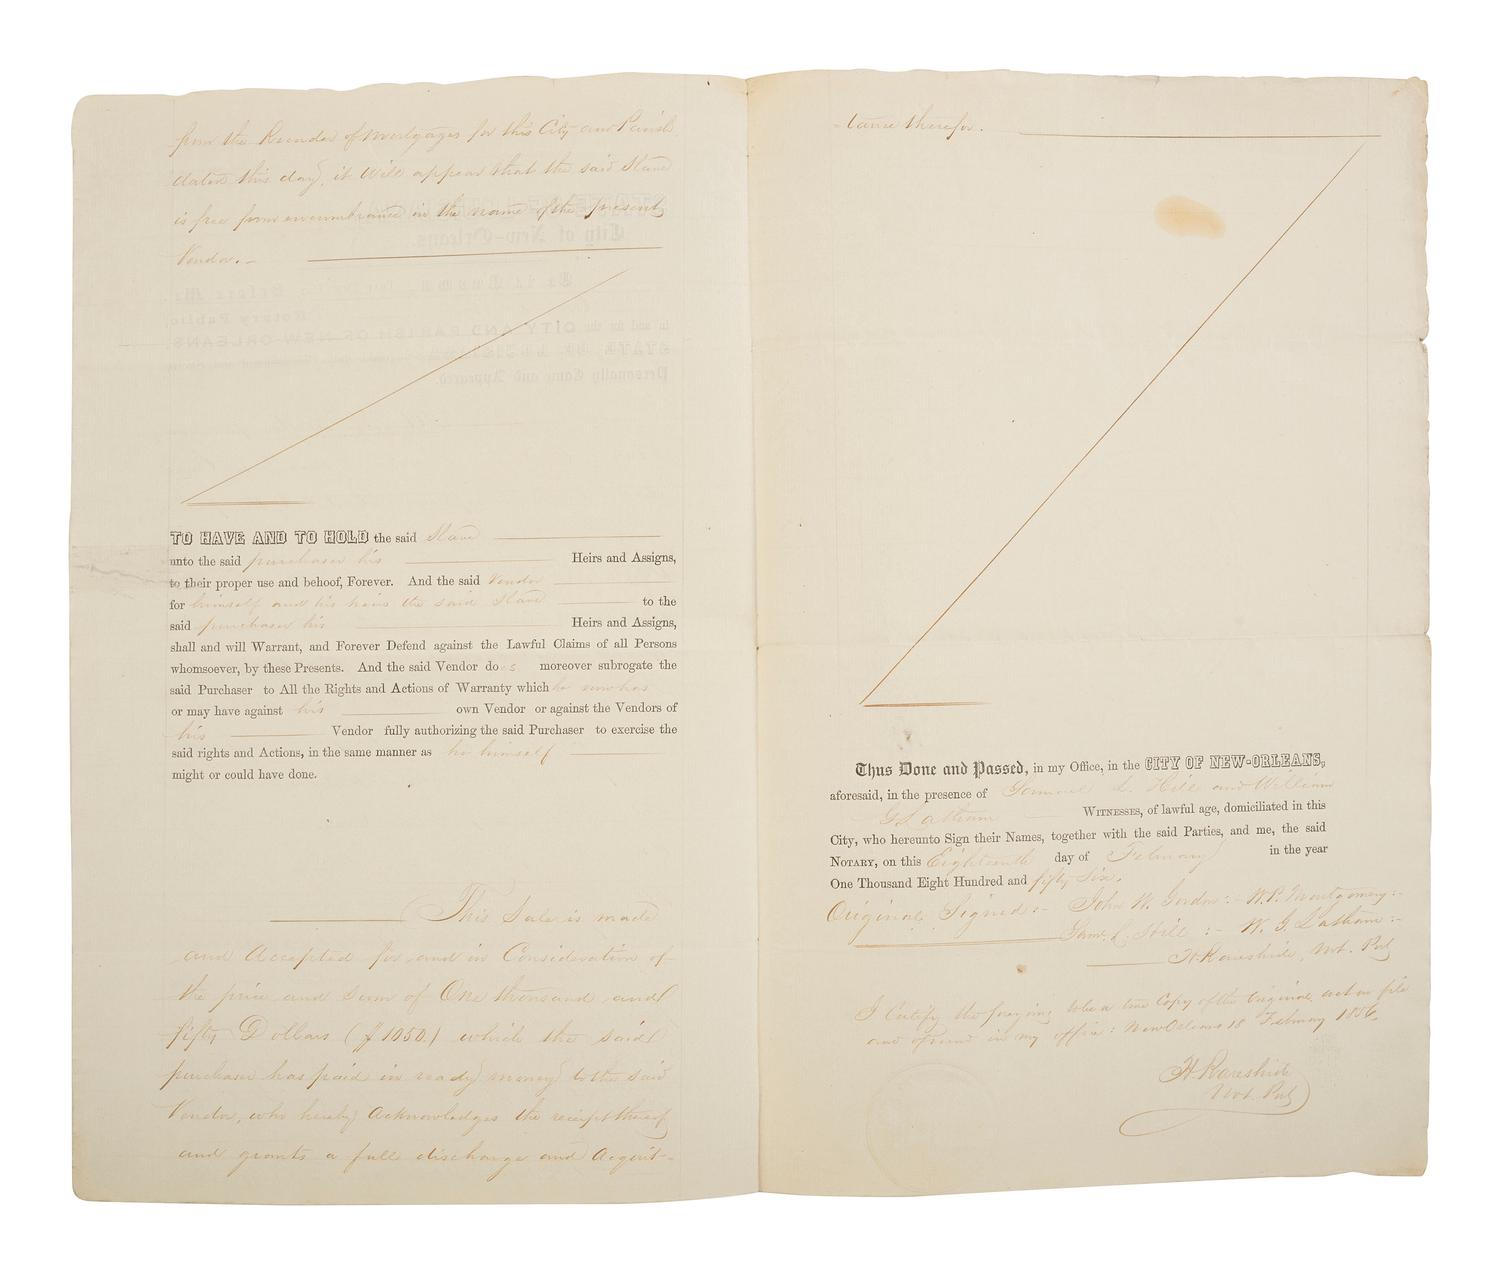 from the Recorder of Mortgages for this City and Parish
dated this day, it will appear that the said Slave
is free from encumbrance in the name of the present
Vendor.
TO HAVE AND TO HOLD the said Slave
unto the said purchaser his Heirs and Assigns,
to their proper use and behoof, Forever. And the said Vendor
for himself and his heirs the said Slave to the
said purchaser his Heirs and Assigns,
shall and will Warrant, and Forever Defend against the Lawful Claims of all Persons
whomsoever, by these Presents. And the said Vendor does moreover subrogate the
said Purchaser to All the Rights and Actions of Warranty which he now has
or may have against his own Vendor or against the Vendors of
his Vendor fully authorizing the said Purchaser to exercise the
said rights and Actions, in the same manner as he himself
might or could have done.
This Sale is made
and Accepted for and in Consideration of
the price and sum of One thousand and
fifty Dollars ($1050.) which the said
purchaser has paid in ready money to the said
Vendor, who hereby Acknowledges the receipt thereof
and grants a full discharge and Acquit-
-tance therefor.
Thus Done and Passed, in my Office, in the CITY OF NEW-ORLEANS,
aforesaid, in the presence of Samuel L. Hill and William
G Latham WITNESSES, of lawful age, domiciliated in this
City, who hereunto Sign their Names, together with the said Parties, and me, the said
NOTARY, on this Eighteenth day of February in the year
One Thousand Eight Hundred and fifty Six.
Original Signed:- John W. Gordon:- W.P. Montgomery:-
Saml. L. Hill:- W. G. Latham:-
H. Rareshide, Not. Pub
I Certify the foregoing to be a true Copy of the Original act on file
and of record in my office: New Orleans 18 February 1856.
H. Rareshide
Not. Pub